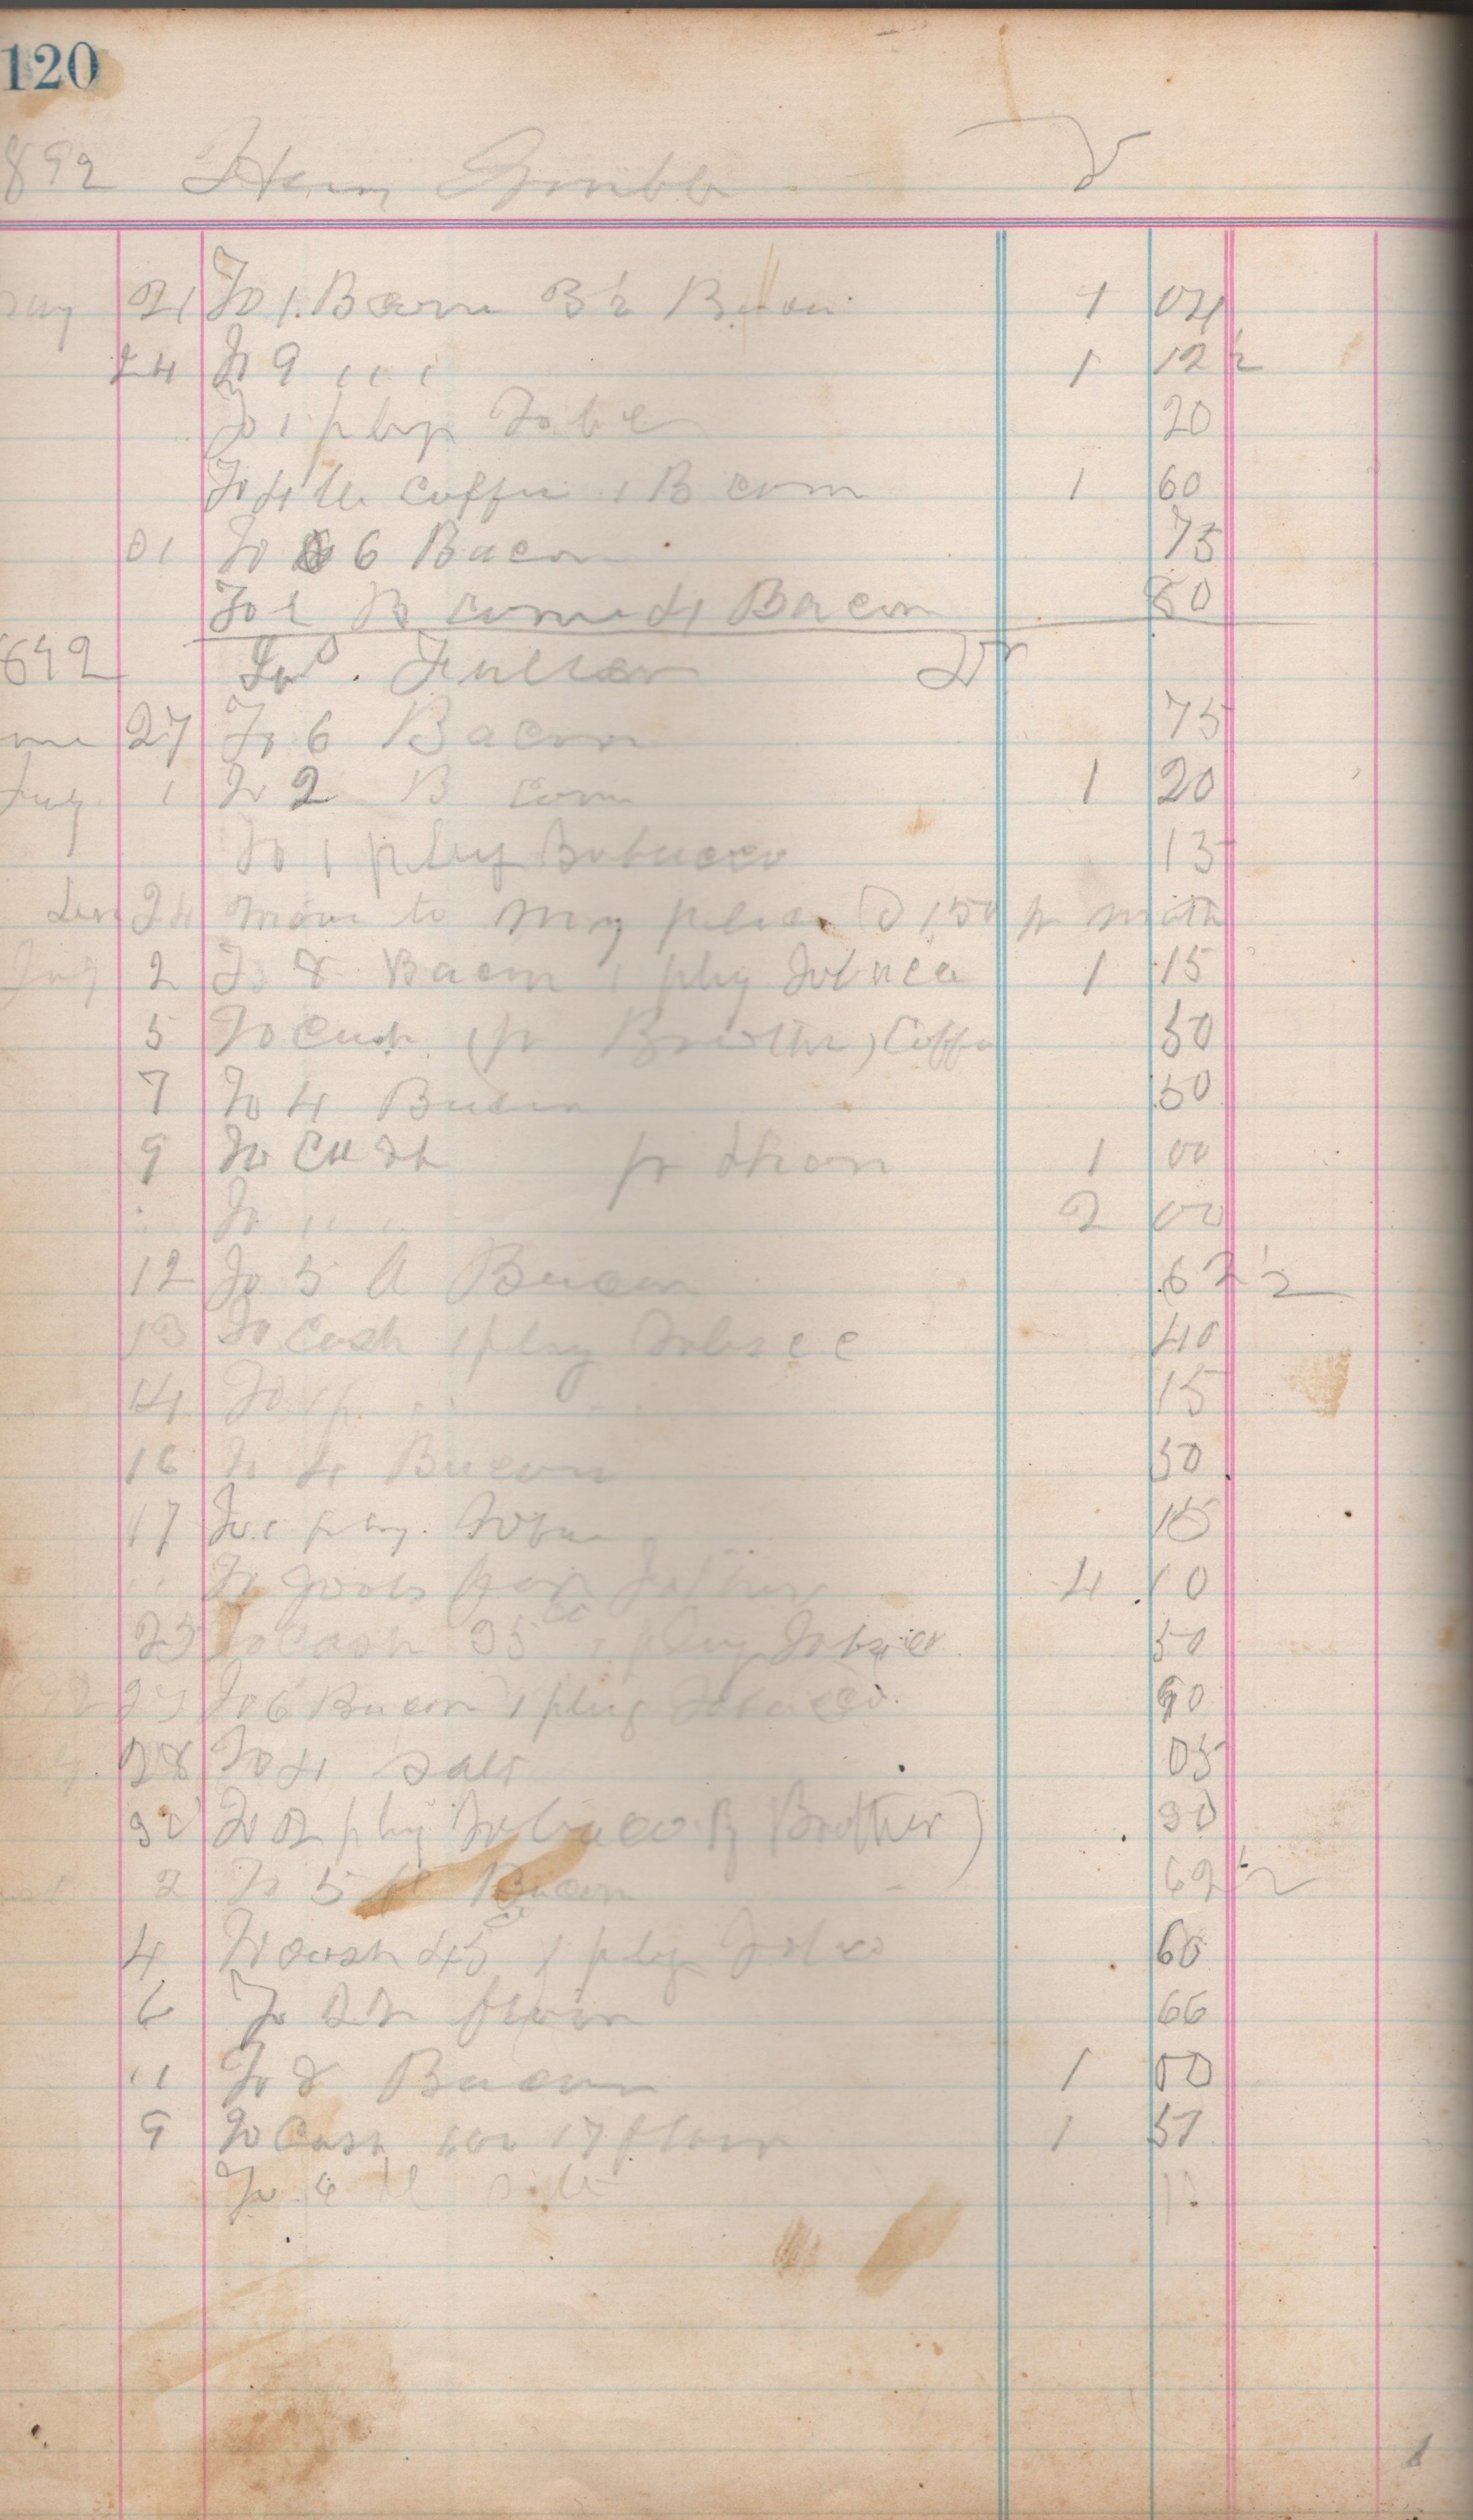 120
892 Henry
21 To 1 B corn 3½ Bacon 1 04
24 To 9 " " 1 12½
To 1 plug 20
To 4 lb Coffee 1 B corn 1 60
To 6 Bacon 75
To 1 B corn 4 Bacon 80
892 Jno. Fuller Dr
27 To 6 Bacon 75
July 1 To 2 B corn 1 20
To 1 plug 15
24 move to my place @ 150 pr month
July 2 To 8 Bacon 1 plug Tobacco 1 15
5 To Cash (pr Brother) Coffee 50
7 To 4 Bacon 50
9 To Cash pr 1 00
To " " 2 00
12 To 5 lb Bacon 62½
13 To Cash 1 plug Tobacco 40
14 To 1 p 15
16 To 4 Bacon 50
17 To 1 plug 15
" To goods 4 10
25 To Cash 35 1 plug Tobacco 50
27 To 6 Bacon 1 plug Tobacco 90
28 To 4 Salt 05
30 To 2 plug Tobacco By Brother) 30
2 To 5 lb Bacon 62½
4 To cash 45 1 plug 60
6 To 22 flour 66
" To 8 Bacon 1 00
9 To Cash 17 flour 1 51
To 4 lb